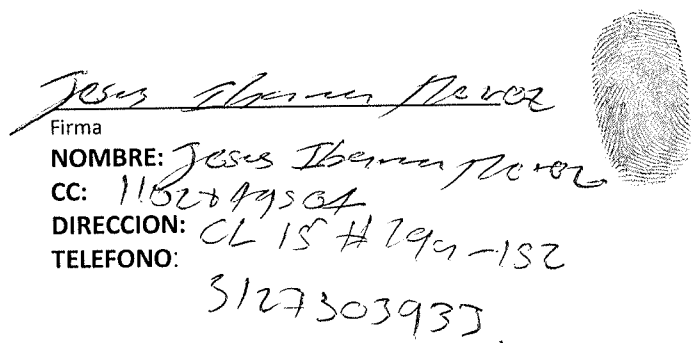 Jesus Ibarra Florez
Firma
NOMBRE: Jesus Ibarra Florez
CC:
DIRECCION: CL 15 # 29a-152
TELEFONO:
3127303933